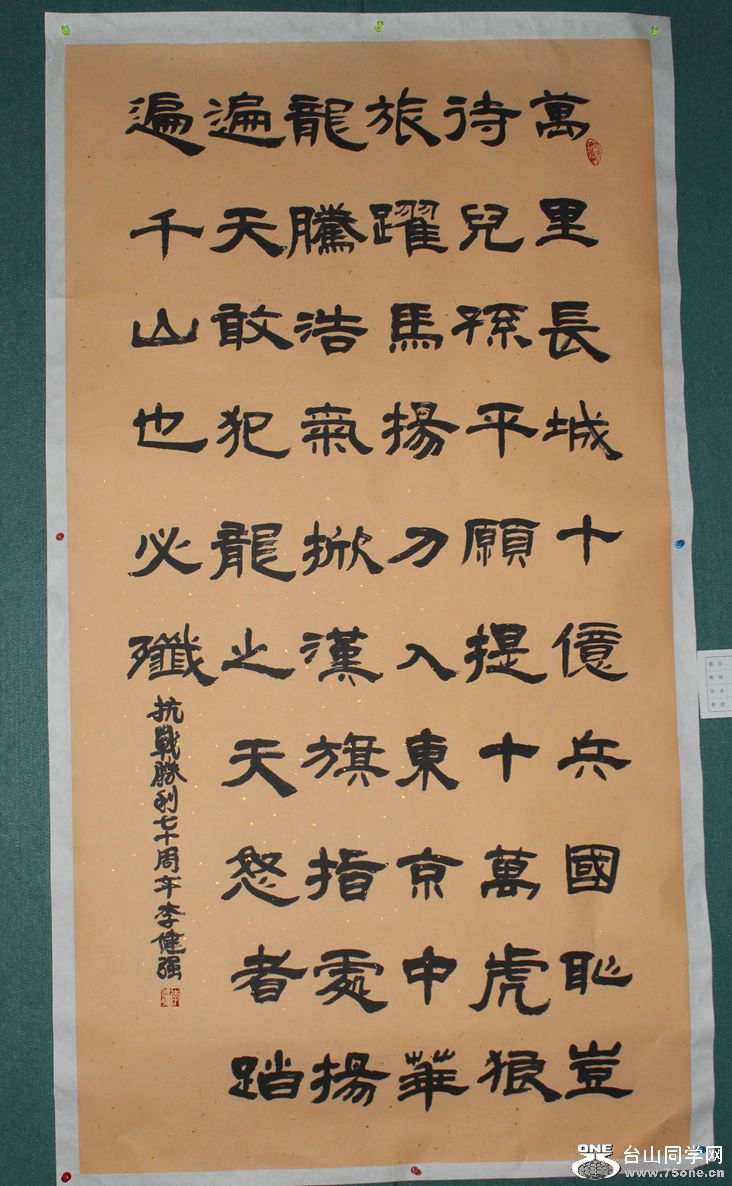 萬里長城十億兵國恥豈
待兒孫平願提十萬虎狼
旅躍馬揚刀入東京中華
龍騰浩氣掀漢旗指處揚
遍天敢犯龍之天怒者踏
遍千山也必殲
抗戰勝利七十周年李健强
ONE
台山同学网
www.75one.cn